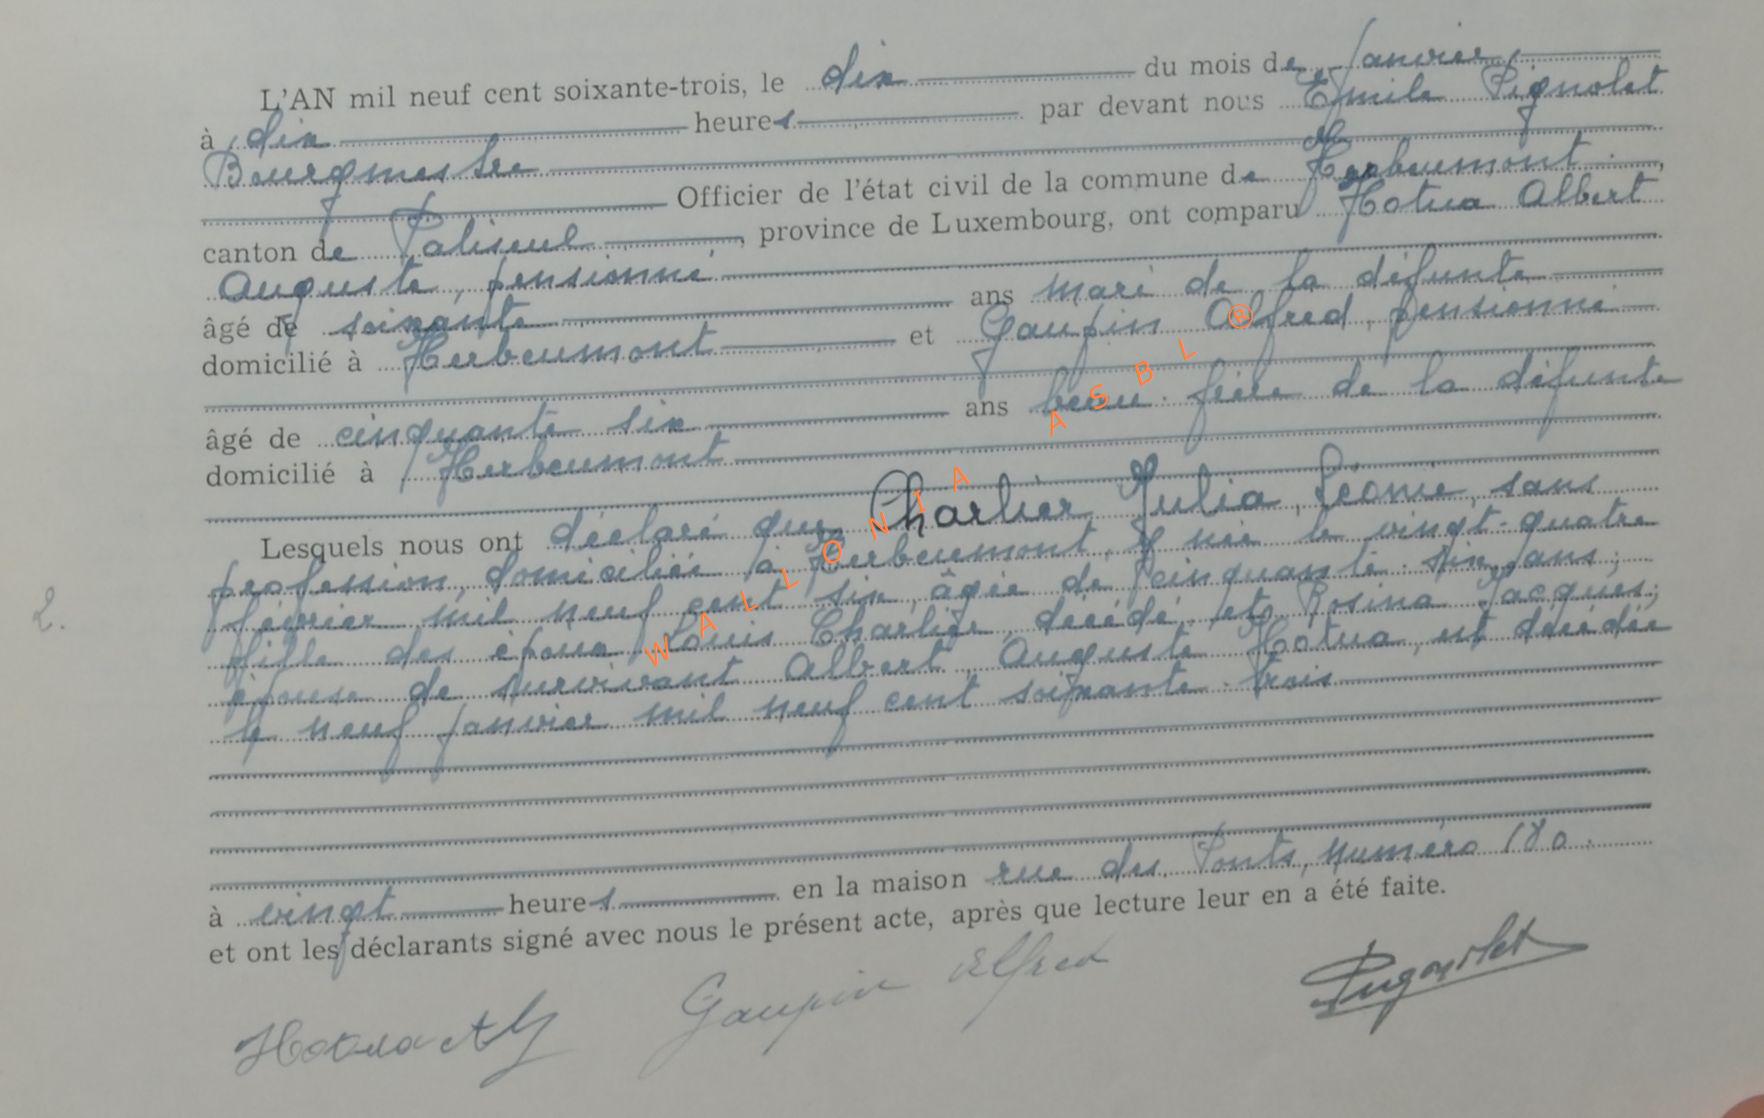 L'AN mil neuf cent soixante-trois, le dix du mois de Janvier
à dix heures par devant nous Emile Pignolet
Bourgmestre
Officier de l'état civil de la commune de Herbeumont
canton de Paliseul, province de Luxembourg, ont comparu Hotua Albert
Auguste, pensionné
âgé de soixante ans mari de la défunte
domicilié à Herbeumont et Gaupin Alfred, pensionné
âgé de cinquante six ans beau-frère de la défunte
domicilié à Herbeumont
Lesquels nous ont déclaré que Charlier Julia, Léonie, sans
profession, domiciliée à Herbeumont, y née le vingt-quatre
février mil neuf cent six, âgée de cinquante-six ans;
fille des époux Louis Charlier, décédé, et Rosina Jacques;
épouse de survivant Albert, Auguste Hotua, est décédée
le neuf janvier mil neuf cent soixante-trois
à vingt heures en la maison rue des Ponts, numéro 180.
et ont les déclarants signé avec nous le présent acte, après que lecture leur en a été faite.
2.
Hotua Alb Gaupin Alfred Pignolet
WALLONIA ASBL ®